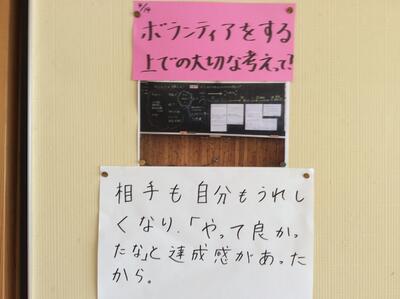 ボランティアをする
上での大切な考えって?
相手も自分もうれし
くなり、「やって良かっ
たな」と達成感があった
から。